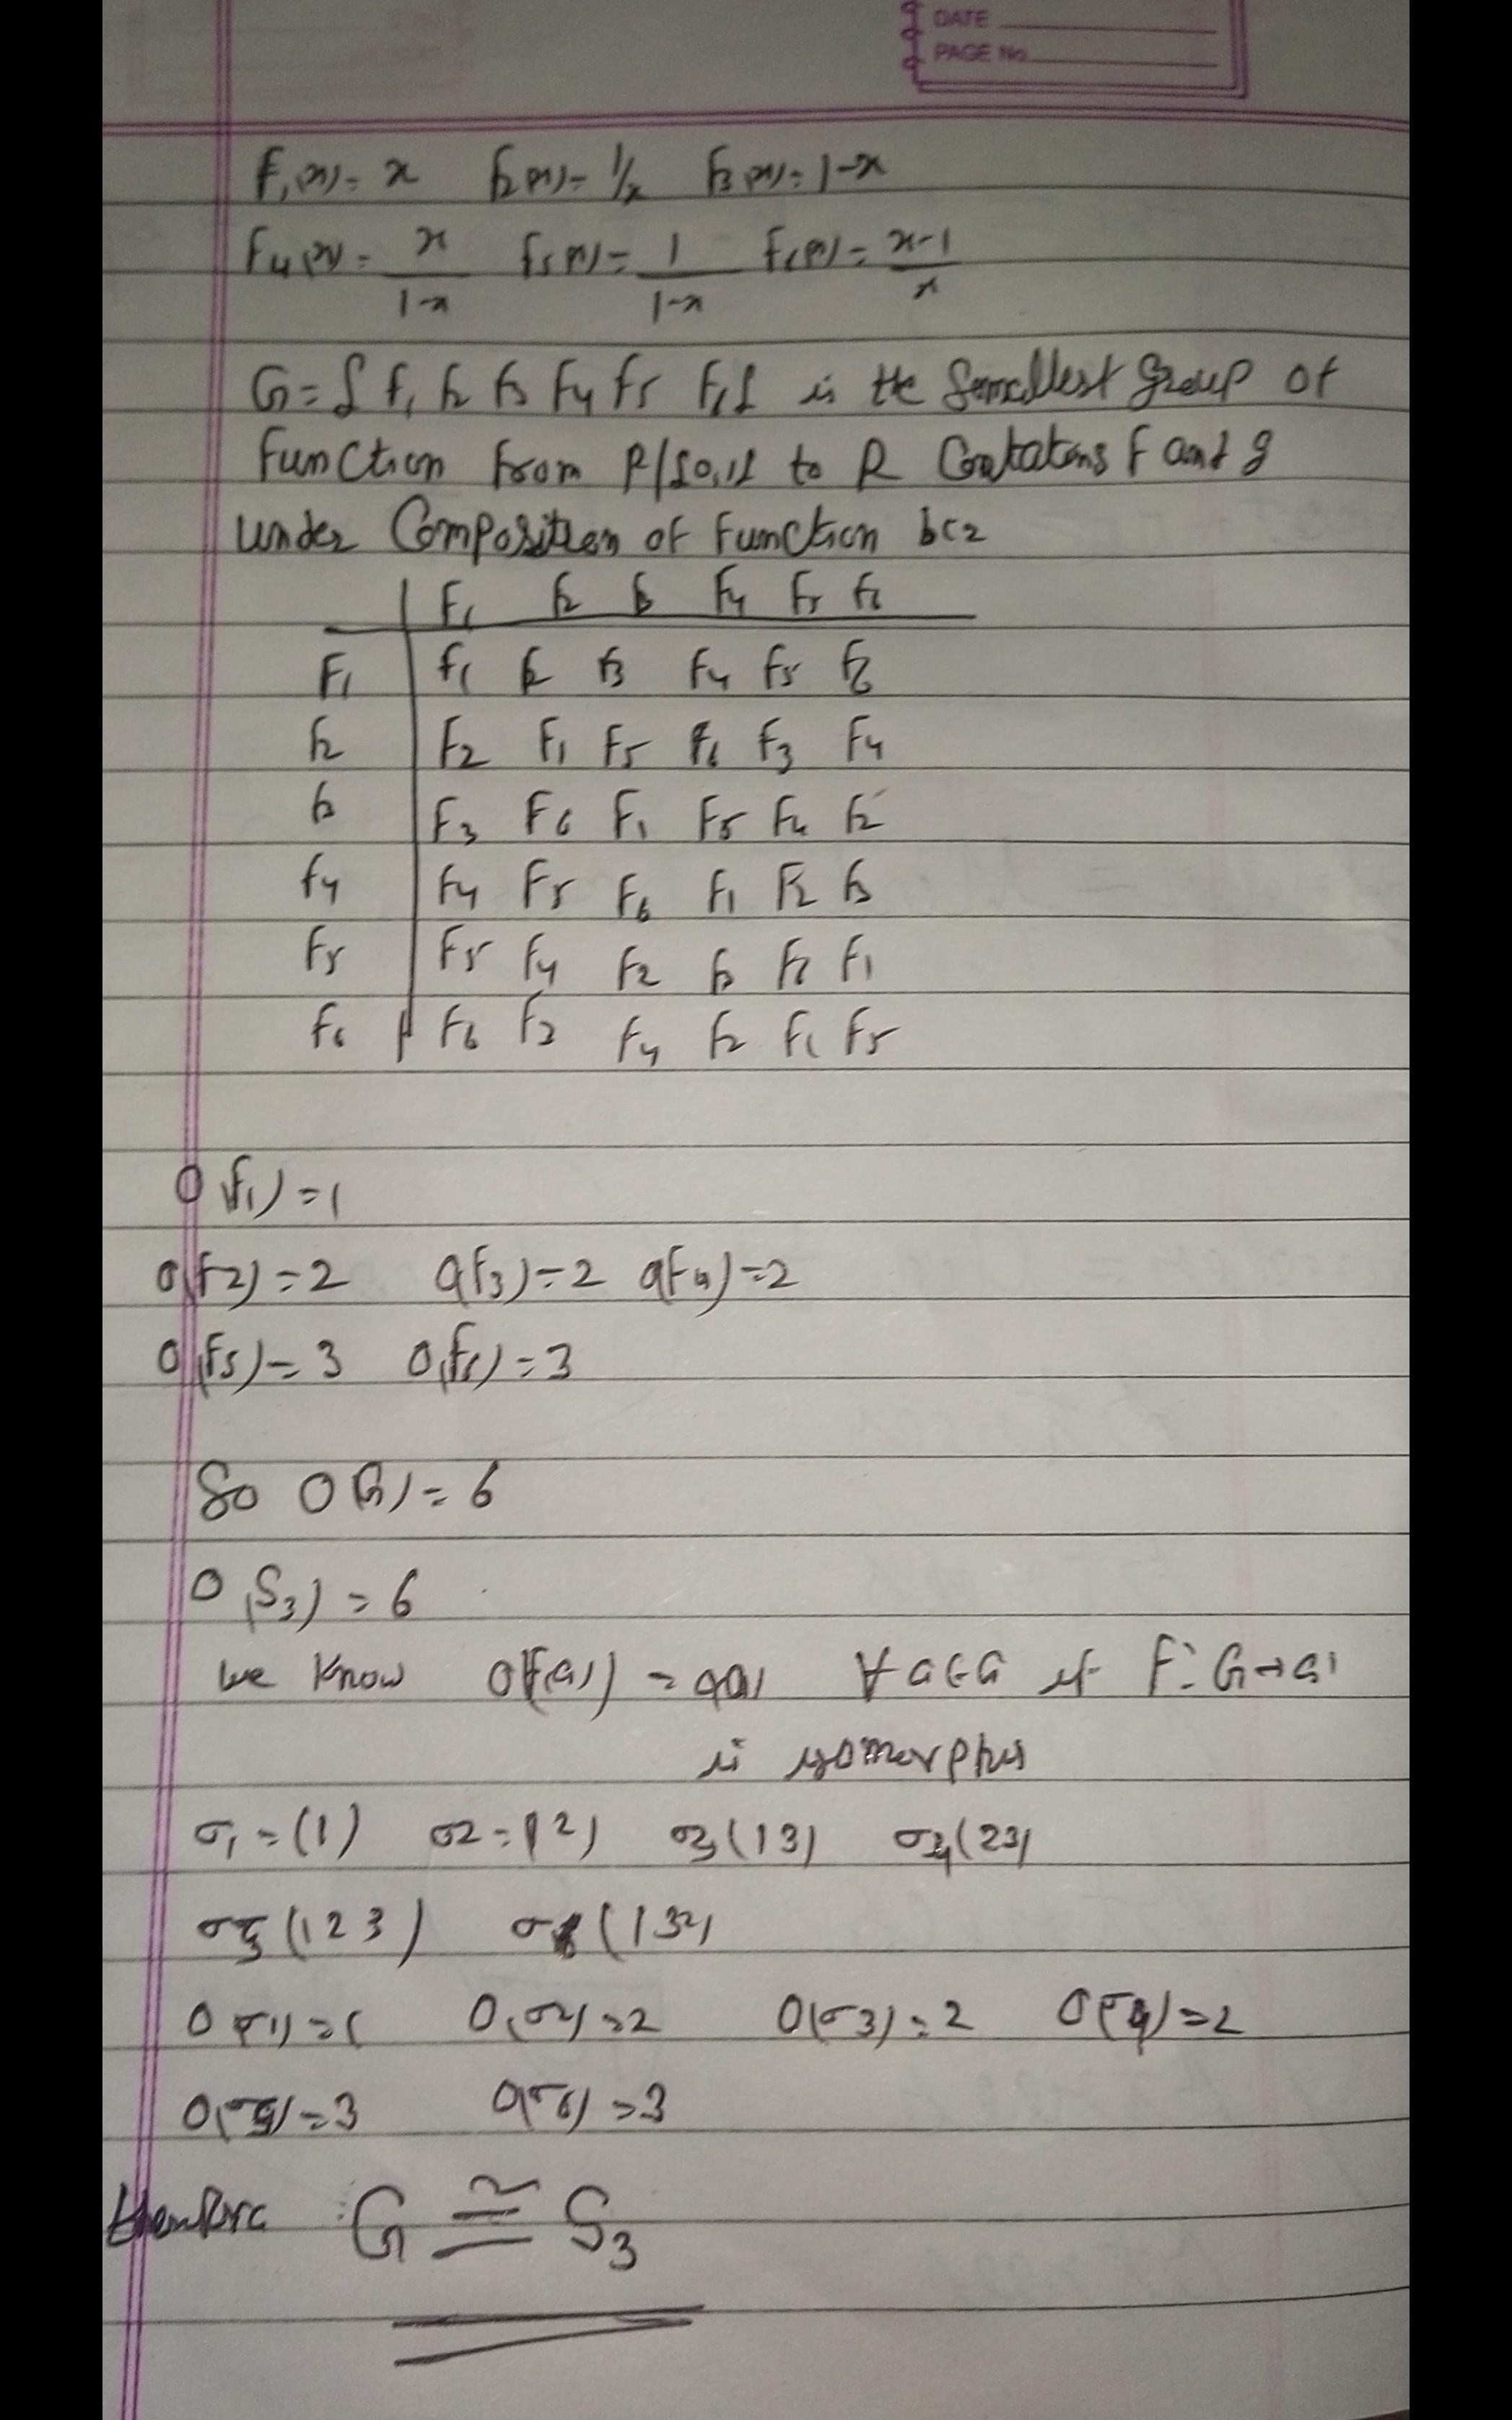 DATE
PAGE No.
F₁(x) = x f₂(x) = 1/x f₃(x) = 1-x
F₄(x) = x/(1-x) f₅(x) = 1/(1-x) f₆(x) = (x-1)/x
G = { f₁ f₂ f₃ F₄ f₅ F₆ } is the smallest group of
Function from R/{0,1} to R Contatans f and g
under Composition of Function bcz
F₁ f₂ f₃ F₄ F₅ f₆
F₁ f₁ f₂ f₃ F₄ F₅ f₆
f₂ F₂ F₁ F₅ f₆ F₃ F₄
f₃ F₃ F₆ F₁ F₅ F₄ f₂
f₄ F₄ F₅ F₆ F₁ F₂ f₃
F₅ F₅ F₄ F₂ f₃ f₆ F₁
f₆ F₆ F₃ F₄ f₂ f₁ F₅
O(f₁) = 1
O(F2) = 2 O(f₃) = 2 O(F₄) = 2
O(F₅) = 3 O(f₆) = 3
So O(G) = 6
O(S₃) = 6
we Know O(f(a)) = O(a) ∀ a ∈ G if F: G → G'
is isomorphis
σ₁ = (1) σ2 = (12) σ₃ (13) σ₄ (23)
σ₅ (123) σ₆ (132)
O(σ1) = 1 O(σ2) = 2 O(σ3) = 2 O(σ4) = 2
O(σ5) = 3 O(σ6) = 3
therefore G ≅ S₃